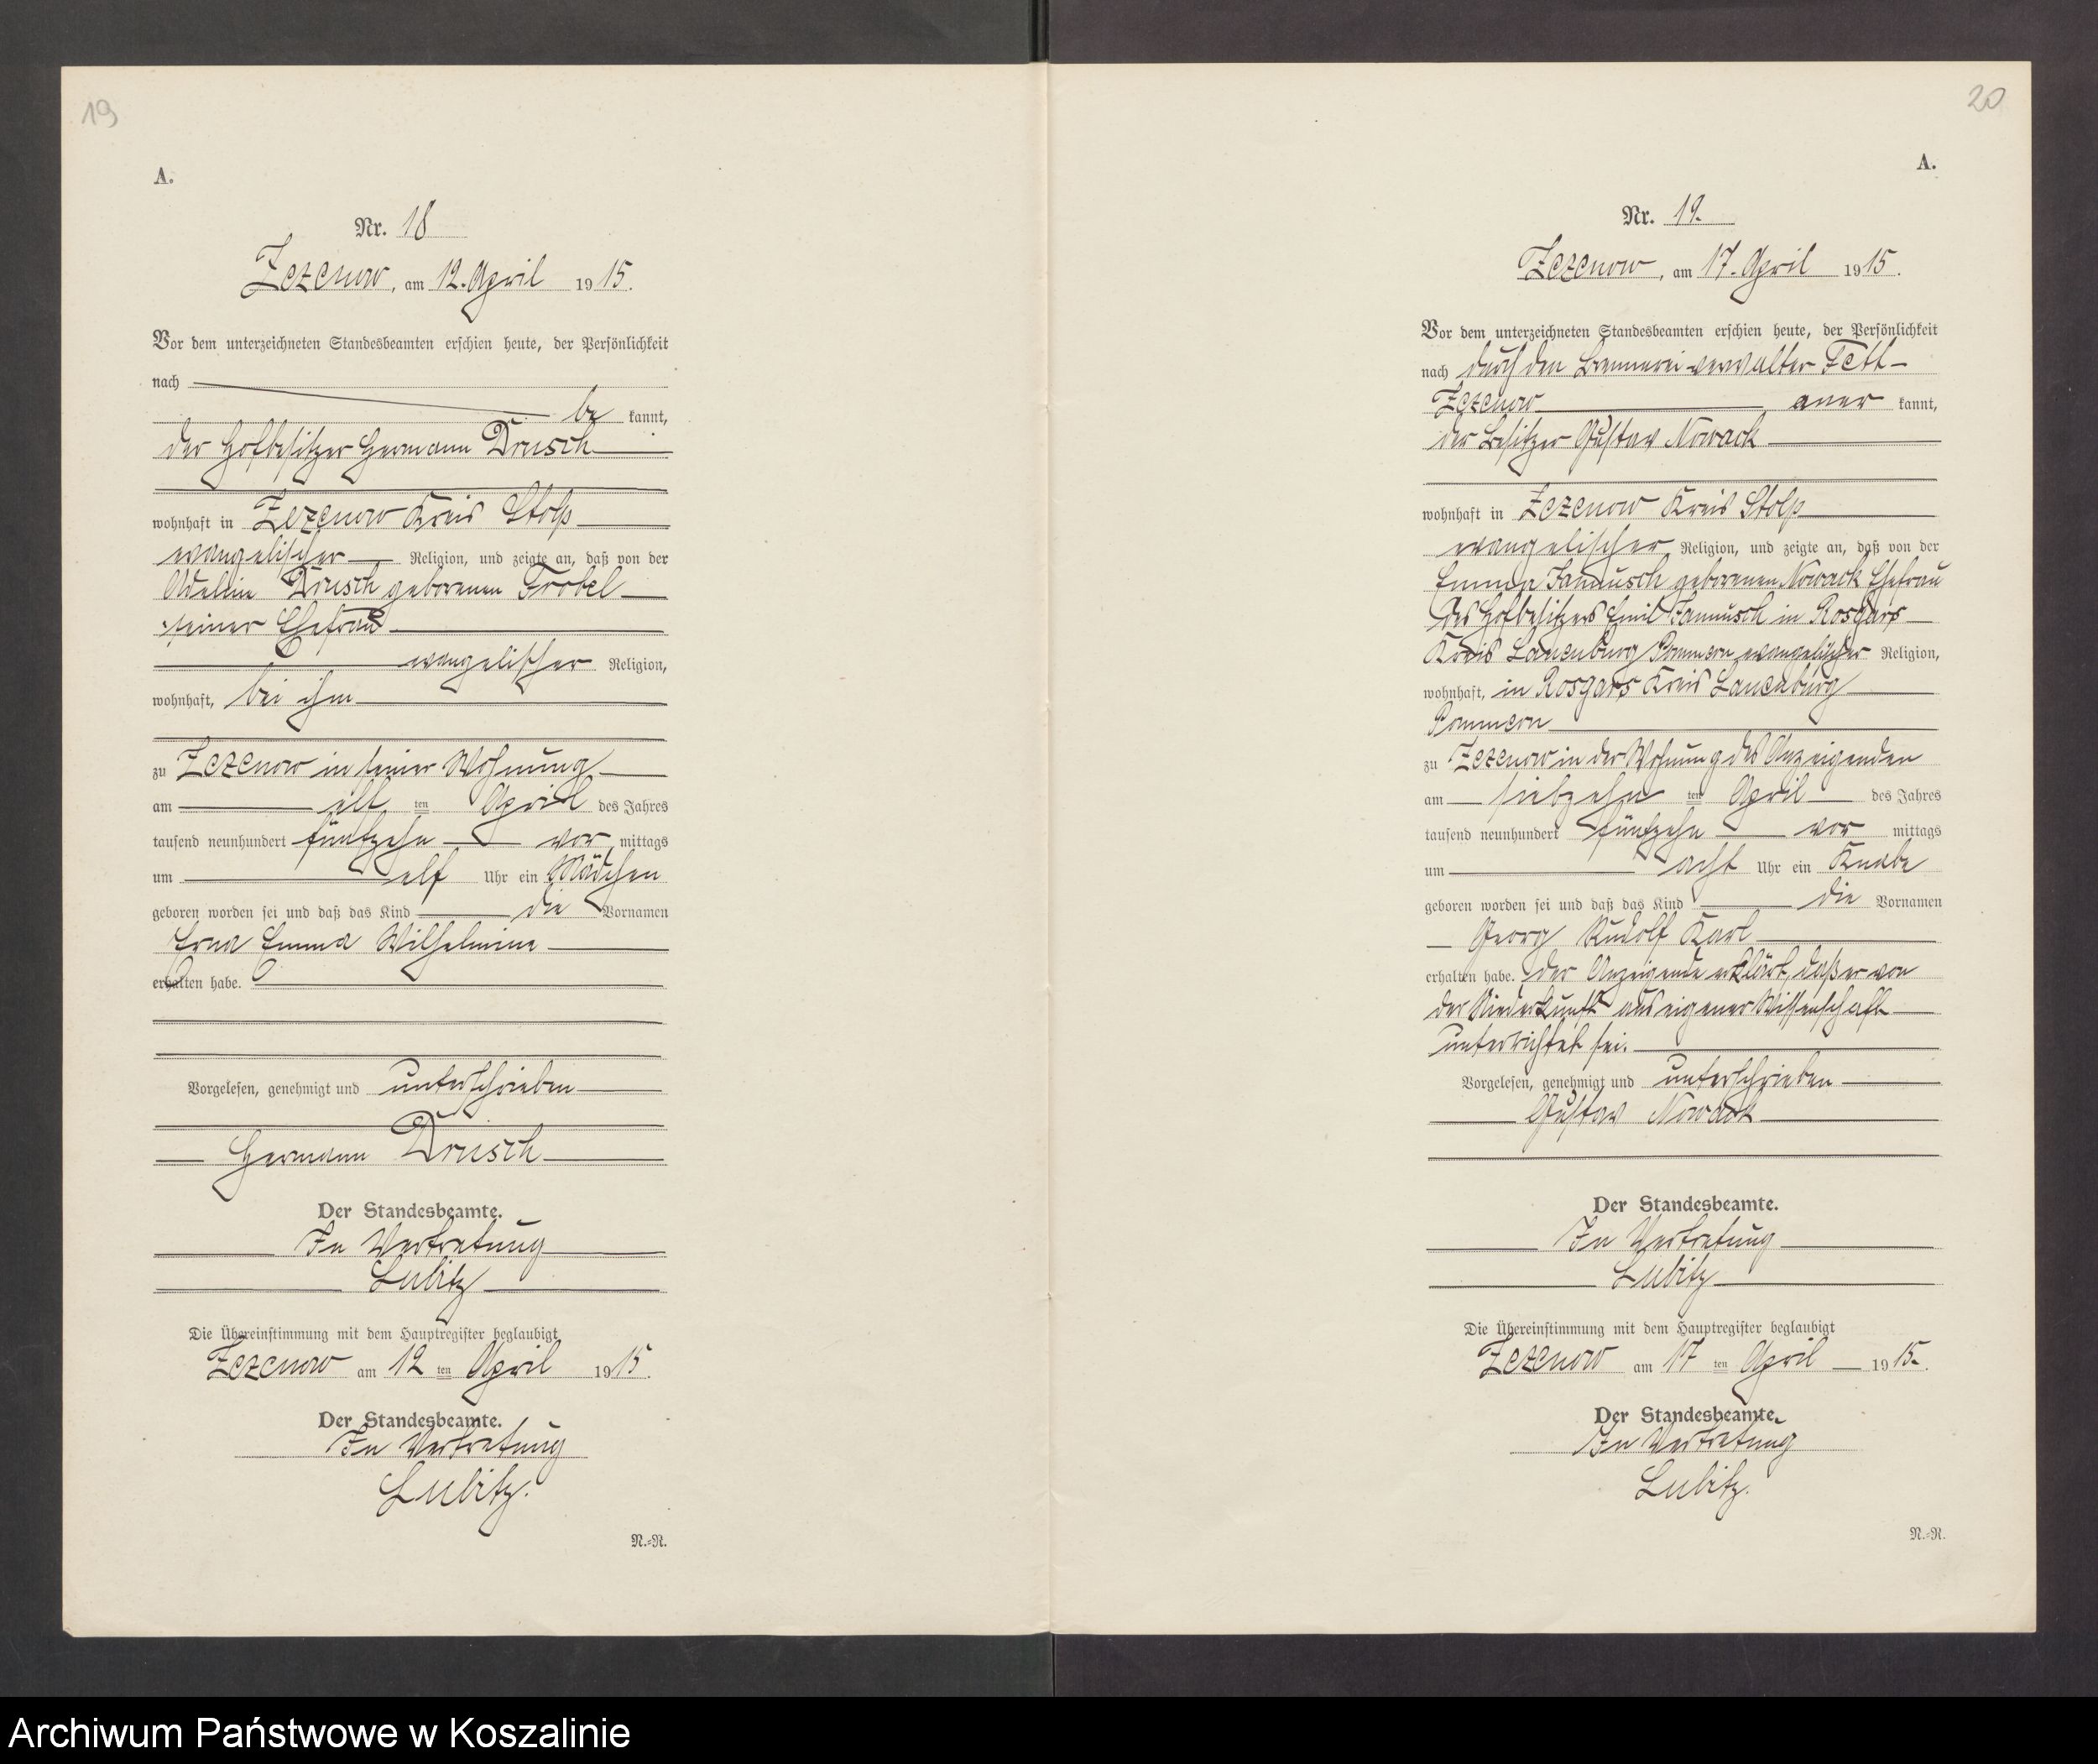 19
A.
Nr. 18
Zezenow, am 12. April 1915.
Vor dem unterzeichneten Standesbeamten erschien heute, der Persönlichkeit
nach
be kannt,
der Hofbesitzer Hermann Drusch
wohnhaft in Zezenow Kreis Stolp
evangelischer Religion, und zeigte an, daß von der
Adeline Drusch geborenen Trobel
seiner Ehefrau
evangelischer Religion,
wohnhaft, bei ihm
zu Zezenow in seiner Wohnung
am elf ten April des Jahres
tausend neunhundert fünfzehn vor mittags
um elf Uhr ein Mädchen
geboren worden sei und daß das Kind die Vornamen
Erna Emma Wilhelmine
erhalten habe.
Vorgelesen, genehmigt und unterschrieben
Hermann Drusch
Der Standesbeamte.
In Vertretung
Lubitz
Die Übereinstimmung mit dem Hauptregister beglaubigt
Zezenow am 12 ten April 1915.
Der Standesbeamte.
In Vertretung
Lubitz.
N.-R.
20
A.
Nr. 19.
Zezenow, am 17. April 1915.
Vor dem unterzeichneten Standesbeamten erschien heute, der Persönlichkeit
nach durch den Brennereiverwalter Tett-
Zezenow aner kannt,
der Besitzer Gustav Nowack
wohnhaft in Zezenow Kreis Stolp
evangelischer Religion, und zeigte an, daß von der
Emma Jannusch geborenen Nowack Ehefrau
des Hofbesitzers Emil Jannusch in Rosgars
Kreis Lauenburg Pommern, evangelischer Religion,
wohnhaft, in Rosgars Kreis Lauenburg
Pommern
zu Zezenow in der Wohnung des Anzeigenden
am siebzehn ten April des Jahres
tausend neunhundert fünfzehn vor mittags
um acht Uhr ein Knabe
geboren worden sei und daß das Kind die Vornamen
Georg Rudolf Karl
erhalten habe. Der Anzeigende erklärt, daß er von
der Niederkunft aus eigener Wissenschaft
unterrichtet sei.
Vorgelesen, genehmigt und unterschrieben
Gustav Nowack
Der Standesbeamte.
In Vertretung
Lubitz
Die Übereinstimmung mit dem Hauptregister beglaubigt
Zezenow am 17 ten April 1915.
Der Standesbeamte.
In Vertretung
Lubitz.
N.-R.
Archiwum Państwowe w Koszalinie